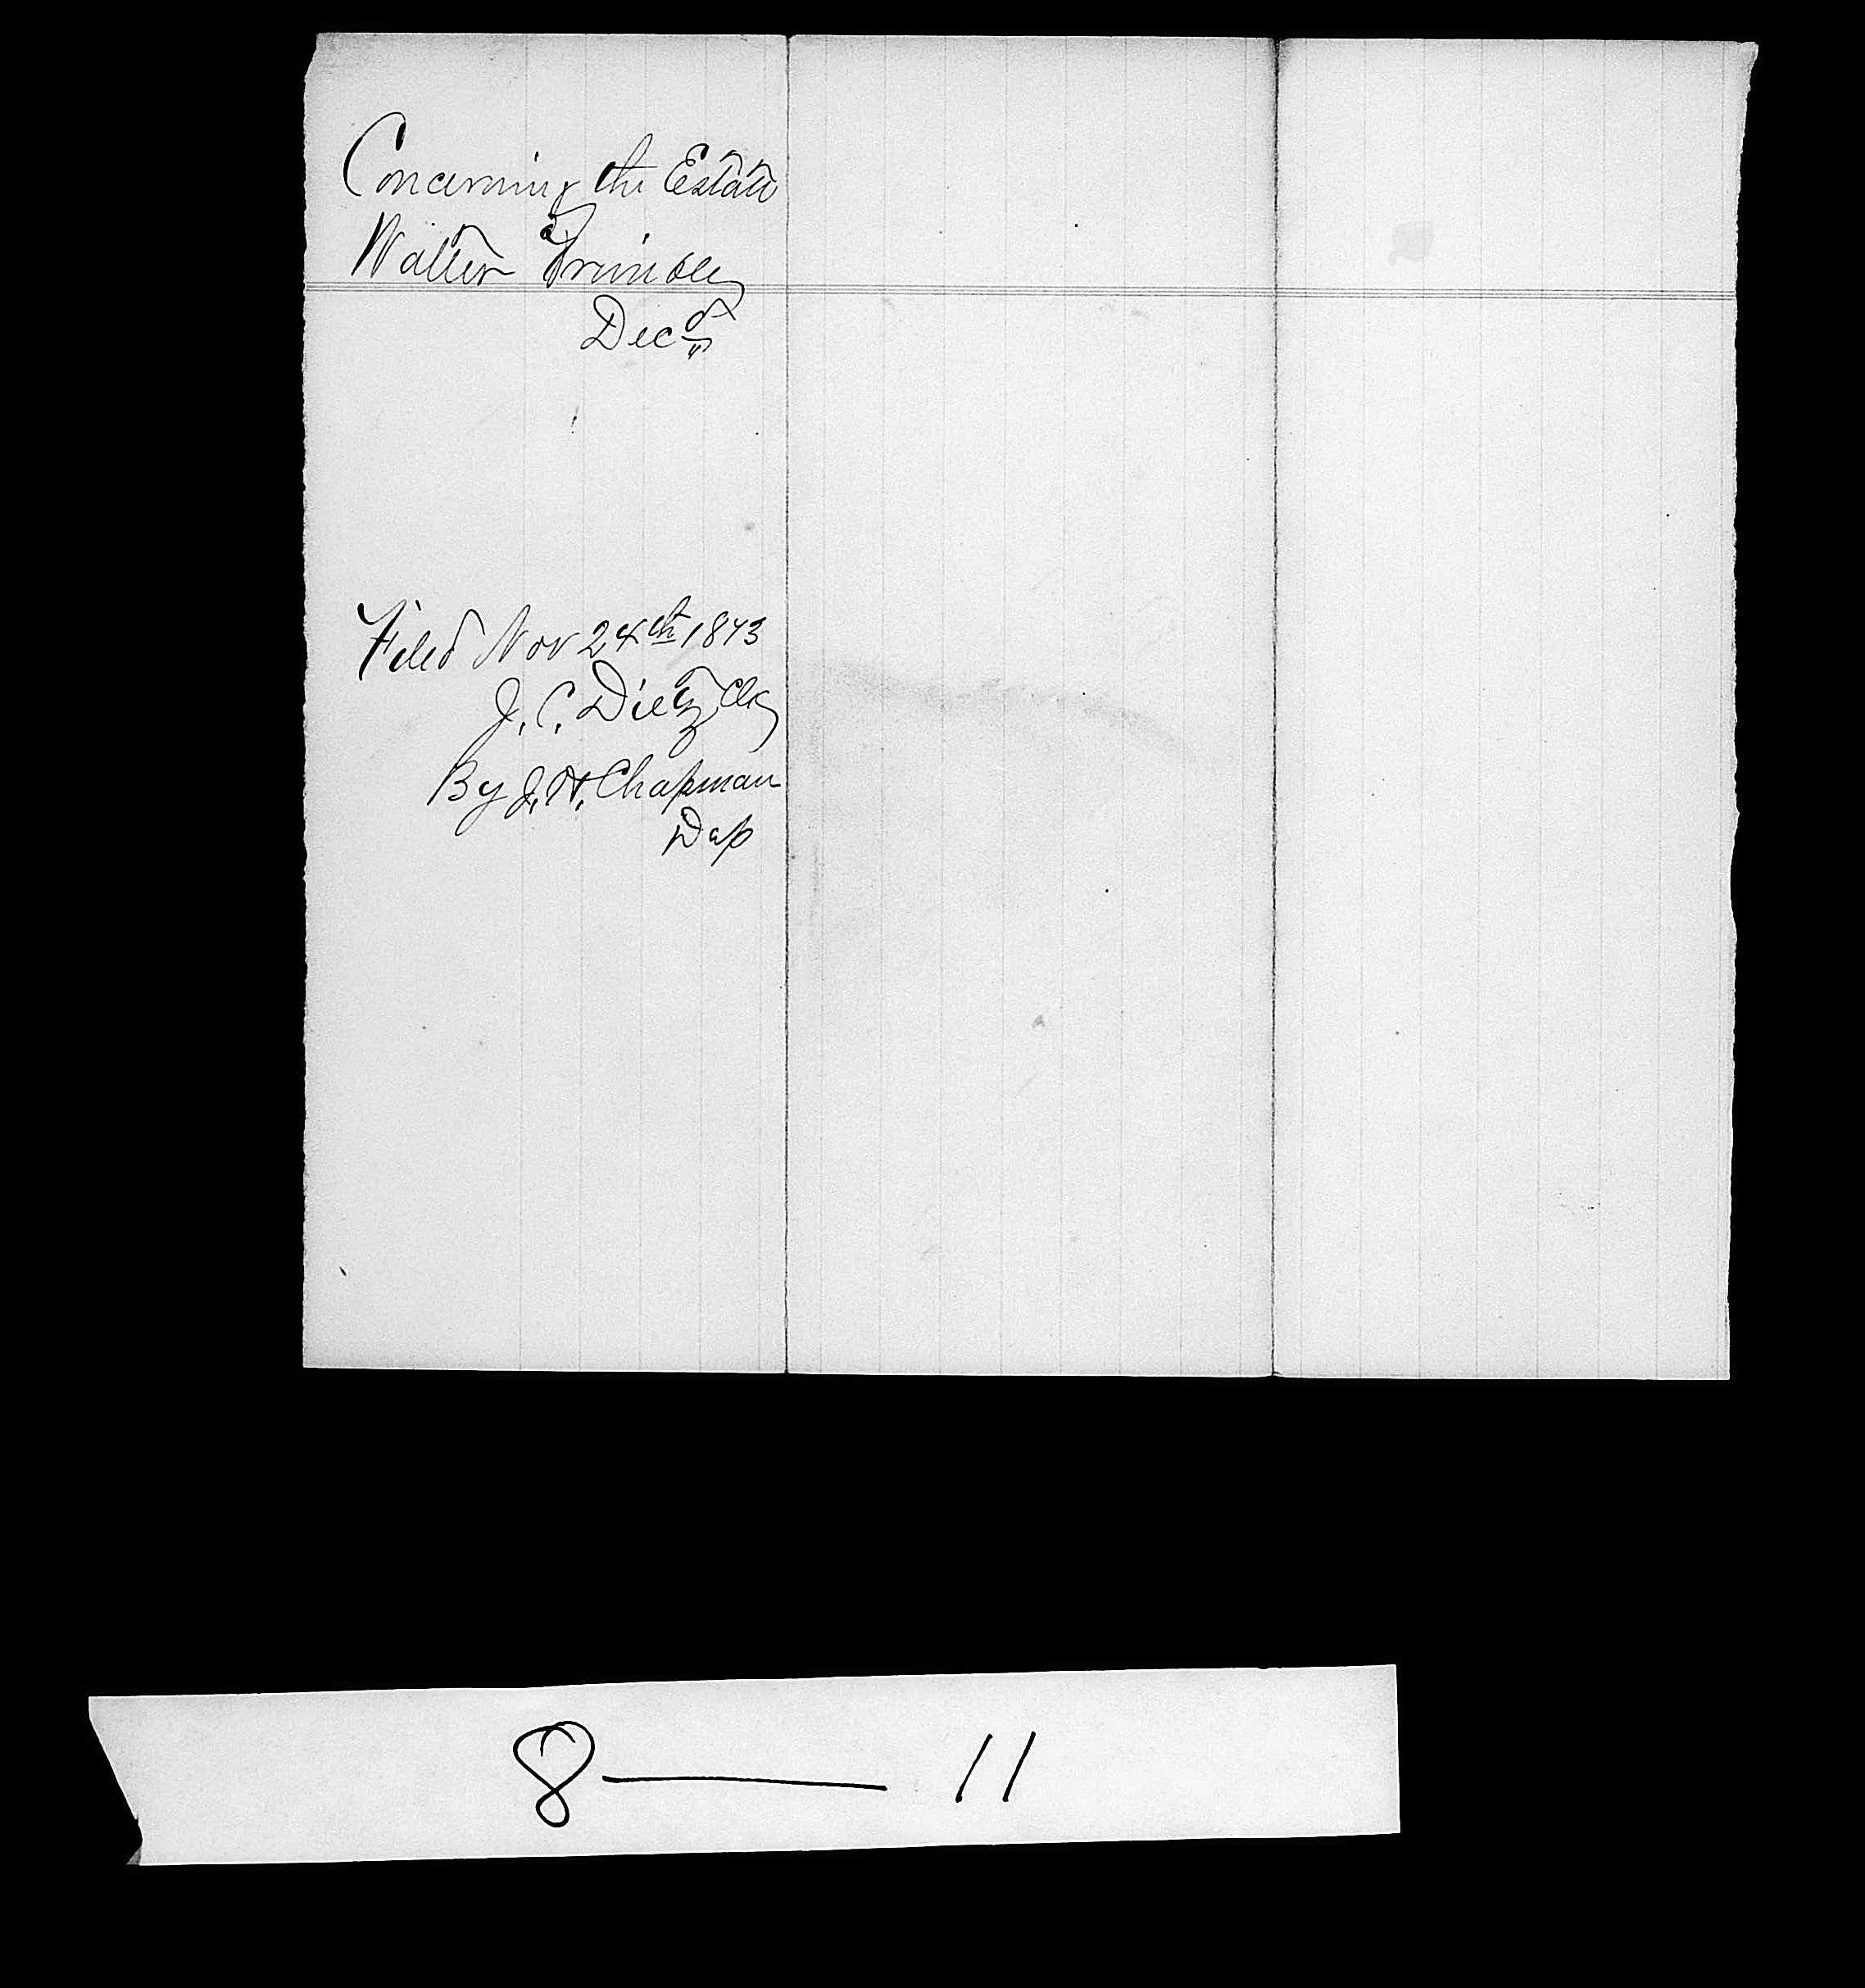 Concerning the Estate
of
Walter Trimble
Decd
Filed Nov 24th 1873
J. C. Dietz Clk
By J. H. Chapman
Dep
8 — 11